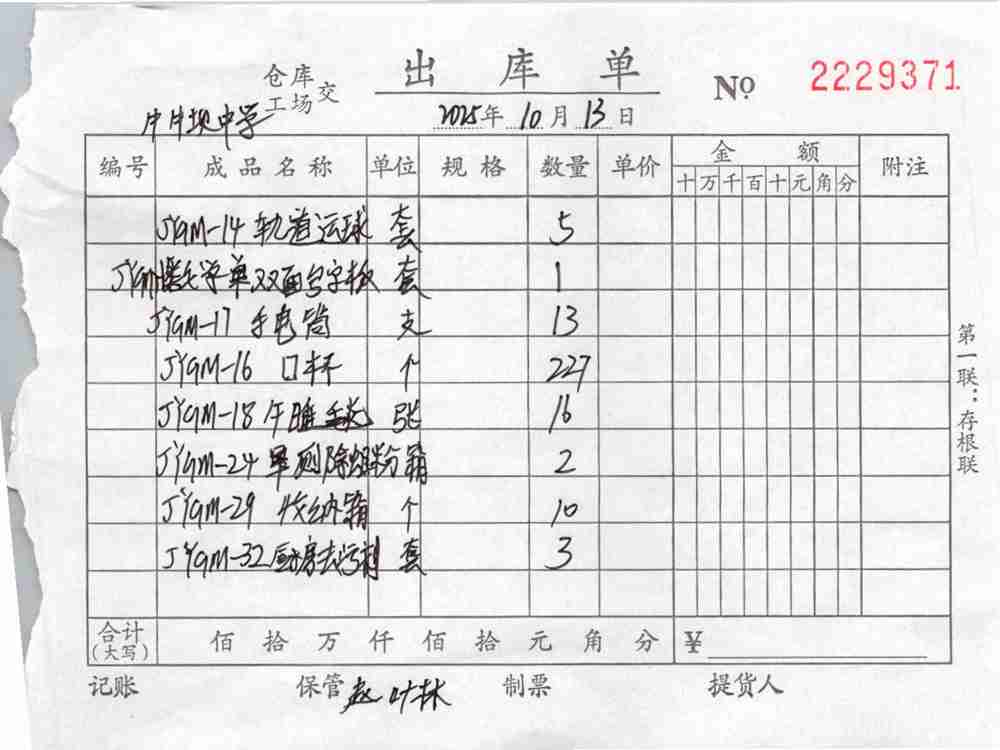 出库单
仓库
工场 交
No 2229371
中坝中学
2025年10月13日
编号 成品名称 单位 规格 数量 单价 金额 附注
十万千百十元角分
JYGM-14 轨道运球 套 5
JYGM 数学单双面写字板 套 1
JYGM-17 手电筒 支 13
JYGM-16 口杯 个 227
JYGM-18 午睡毛毯 张 16
JYGM-24 箱 2
JYGM-29 收纳箱 个 10
JYGM-32 厨房去污剂 套 3
第一联：存根联
合计(大写) 佰拾万仟佰拾元角分 ¥
记账 保管 赵叶林 制票 提货人